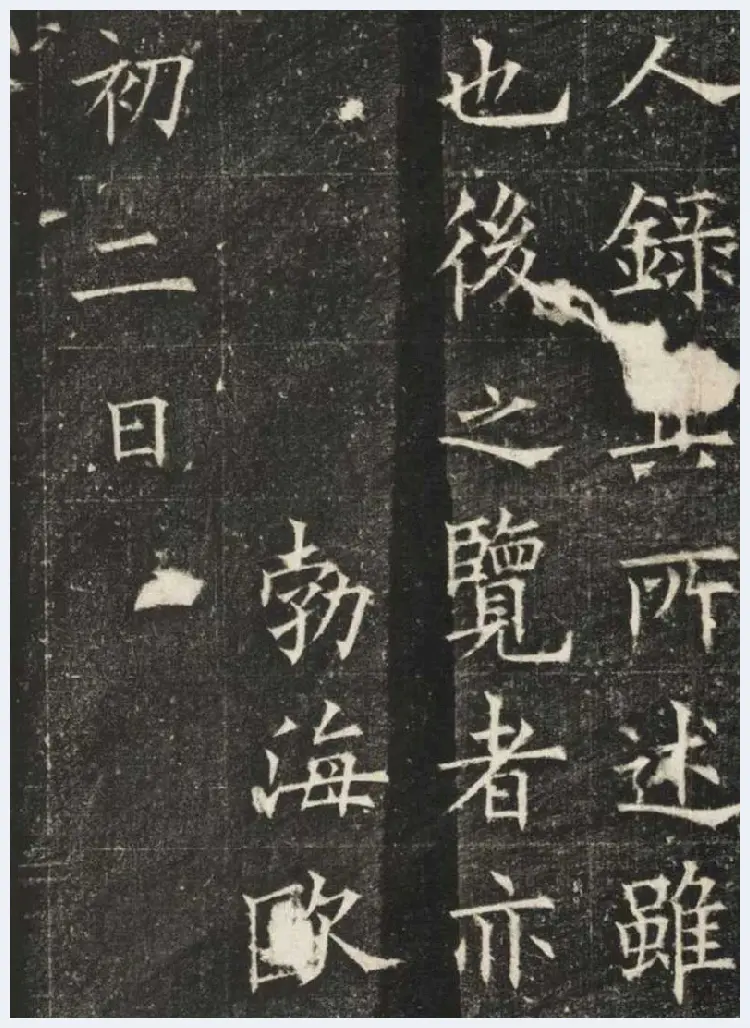 人錄其所述雖
也後之覽者亦
勃海歐
初二日